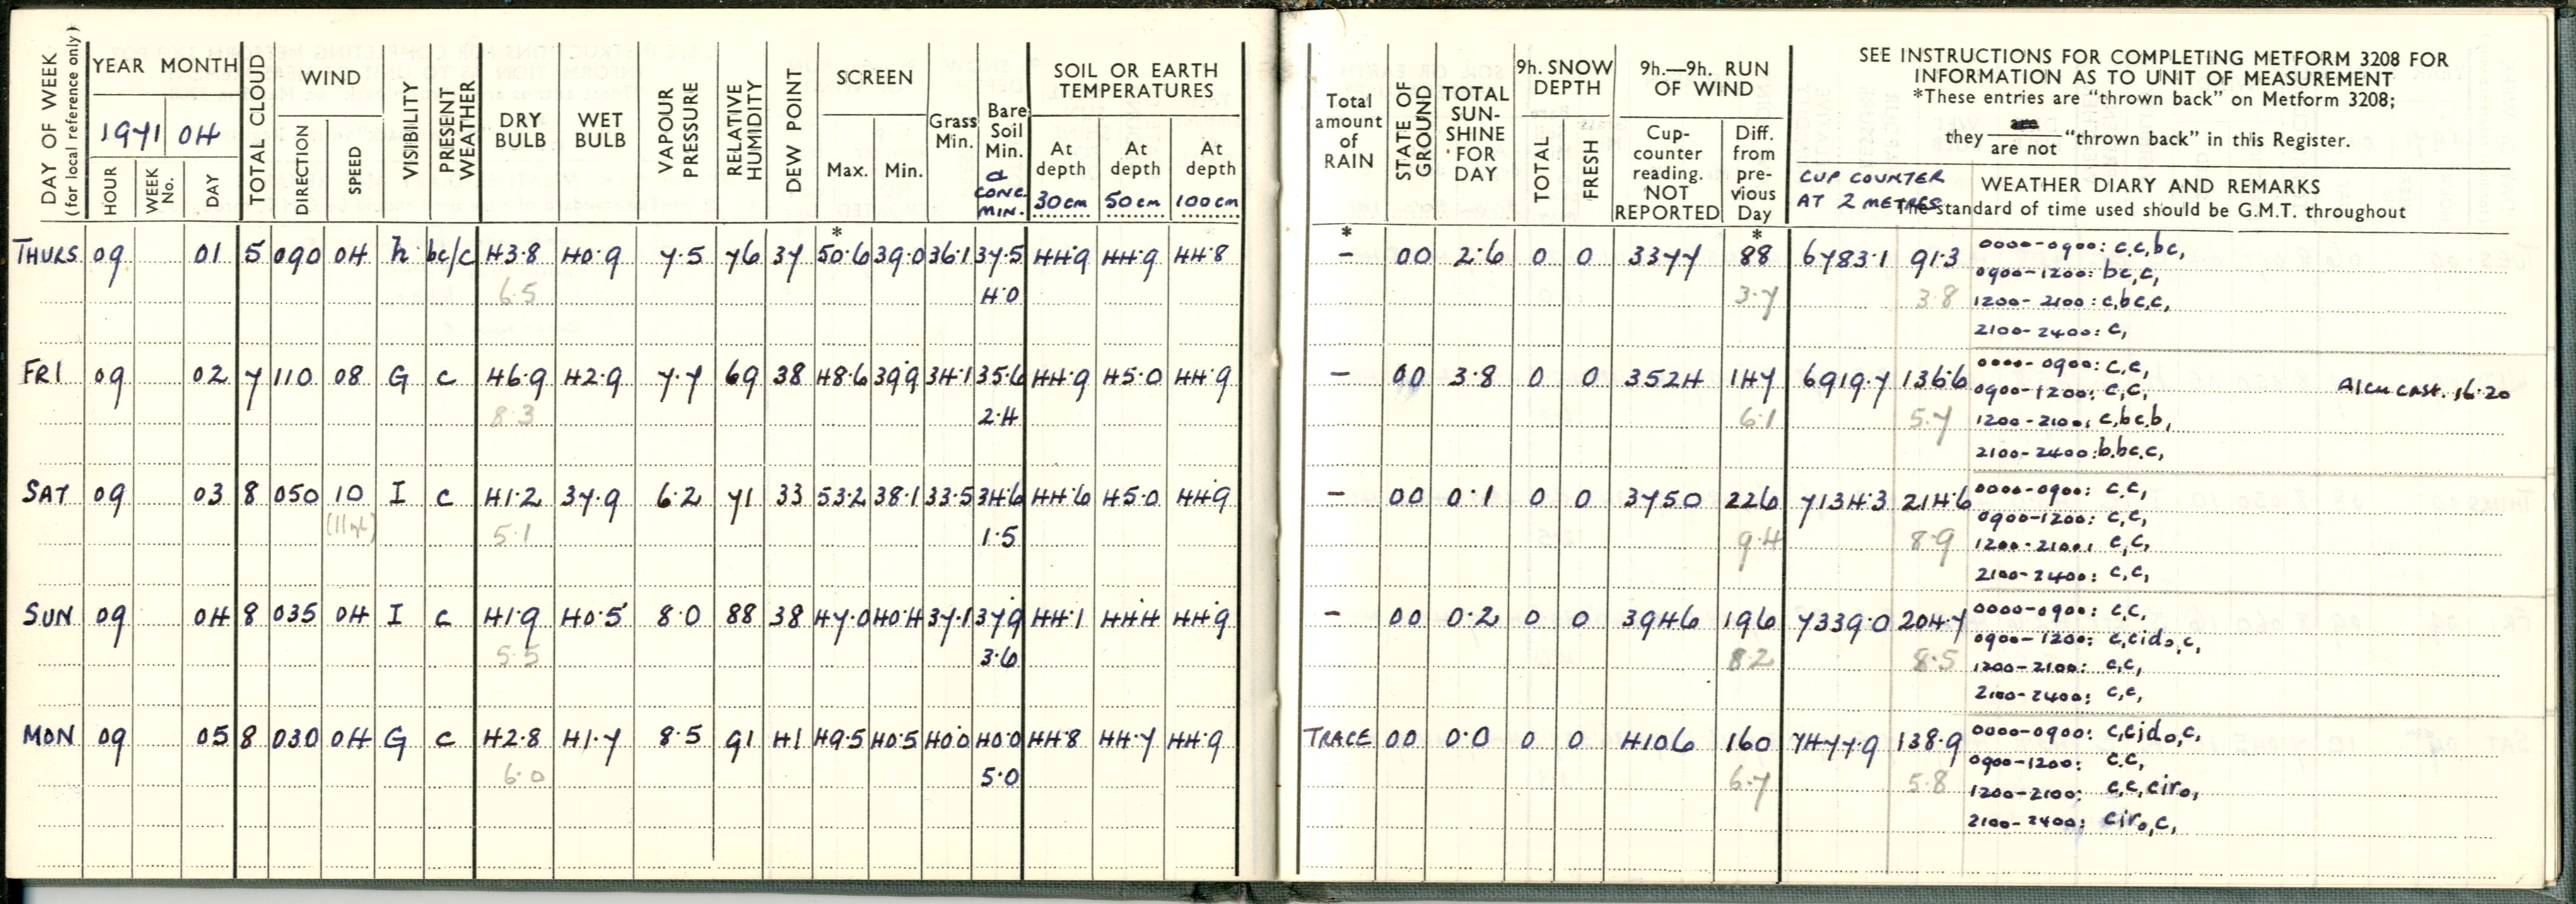 DAY OF WEEK
(for local reference only)
YEAR MONTH
1971 04
HOUR
WEEK No.
DAY
TOTAL CLOUD
WIND
DIRECTION
SPEED
VISIBILITY
PRESENT WEATHER
DRY BULB
WET BULB
VAPOUR PRESSURE
RELATIVE HUMIDITY
DEW POINT
SCREEN
Max. Min.
Grass Min.
Bare Soil Min.
&
CONC.
MIN.
SOIL OR EARTH TEMPERATURES
At depth At depth At depth
30cm 50cm 100cm
THURS 09 01 5 090 04 h bc/c 43.8 40.9 7.5 76 37 50.6 39.0 36.1 37.5 44.9 44.9 44.8
6.5 4.0
FRI 09 02 7 110 08 G c 46.9 42.9 7.7 69 38 48.6 39.9 34.1 35.6 44.9 45.0 44.9
8.3 2.4
SAT 09 03 8 050 10 I c 41.2 37.9 6.2 71 33 53.2 38.1 33.5 34.6 44.6 45.0 44.9
5.1 1.5
SUN 09 04 8 035 04 I c 41.9 40.5 8.0 88 38 47.0 40.4 37.1 37.9 44.1 44.4 44.9
5.5 3.6
MON 09 05 8 030 04 G c 42.8 41.7 8.5 91 41 49.5 40.5 40.0 40.0 44.8 44.7 44.9
6.0 5.0
Total amount of RAIN
STATE OF GROUND
TOTAL SUN-SHINE FOR DAY
9h. SNOW DEPTH
TOTAL
FRESH
9h.—9h. RUN OF WIND
Cup-counter reading. NOT REPORTED
Diff. from pre-vious Day
SEE INSTRUCTIONS FOR COMPLETING METFORM 3208 FOR
INFORMATION AS TO UNIT OF MEASUREMENT
*These entries are "thrown back" on Metform 3208;
they are / are not "thrown back" in this Register.
CUP COUNTER
AT 2 METRES
WEATHER DIARY AND REMARKS
The standard of time used should be G.M.T. throughout
* * *
- 00 2.6 0 0 3377 88 6783.1 91.3 0000-0900: c,c,bc,
0900-1200: bc,c,
3.7 3.8 1200-2100: c,bc,c,
2100-2400: c,
- 00 3.8 0 0 3524 147 6919.7 136.6 0000-0900: c,c,
0900-1200: c,c,
6.1 5.7 1200-2100: c,bc,b,
2100-2400: b,bc,c,
16.20
- 00 0.1 0 0 3750 226 7134.3 214.6 0000-0900: c,c,
0900-1200: c,c,
9.4 8.9 1200-2100: c,c,
2100-2400: c,c,
- 00 0.2 0 0 3946 196 7339.0 204.7 0000-0900: c,c,
0900-1200: c,cido,c,
8.2 8.5 1200-2100: c,c,
2100-2400: c,c,
TRACE 00 0.0 0 0 4106 160 7477.9 138.9 0000-0900: c,cjdo,c,
0900-1200: c,c,
6.7 5.8 1200-2100: c,c,ciro,
2100-2400: ciro,c,